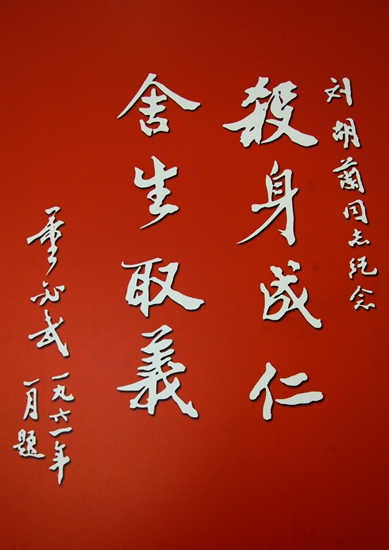 刘胡蘭同志纪念
殺身成仁
舍生取義
董必武
一九六一年
一月題